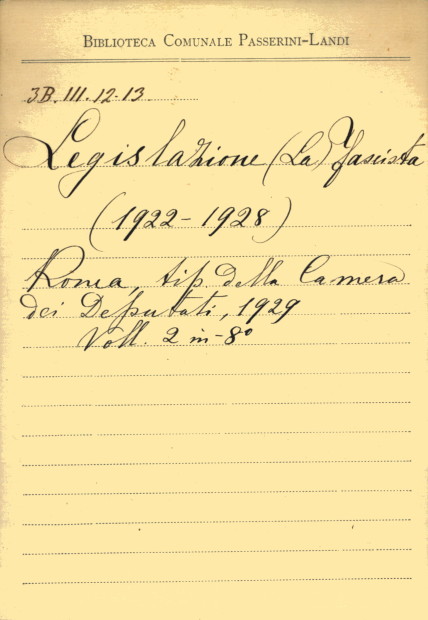 BIBLIOTECA COMUNALE PASSERINI-LANDI
3B.III.12-13
Legislazione (La) fascista
(1922-1928)
Roma, tip. della Camera
dei Deputati, 1929
Voll. 2 in-8º